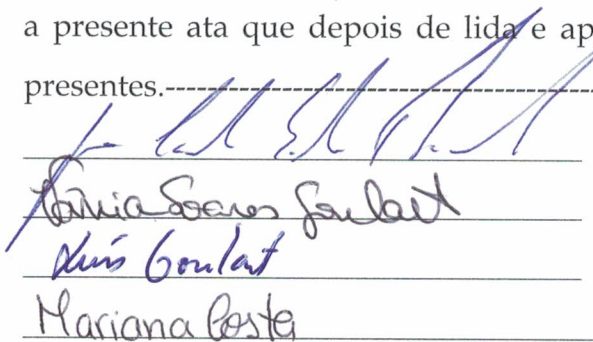 a presente ata que depois de lida e ap
presentes.-----------------------------------
Vânia Soares Goulart
Luís Goulart
Mariana Costa